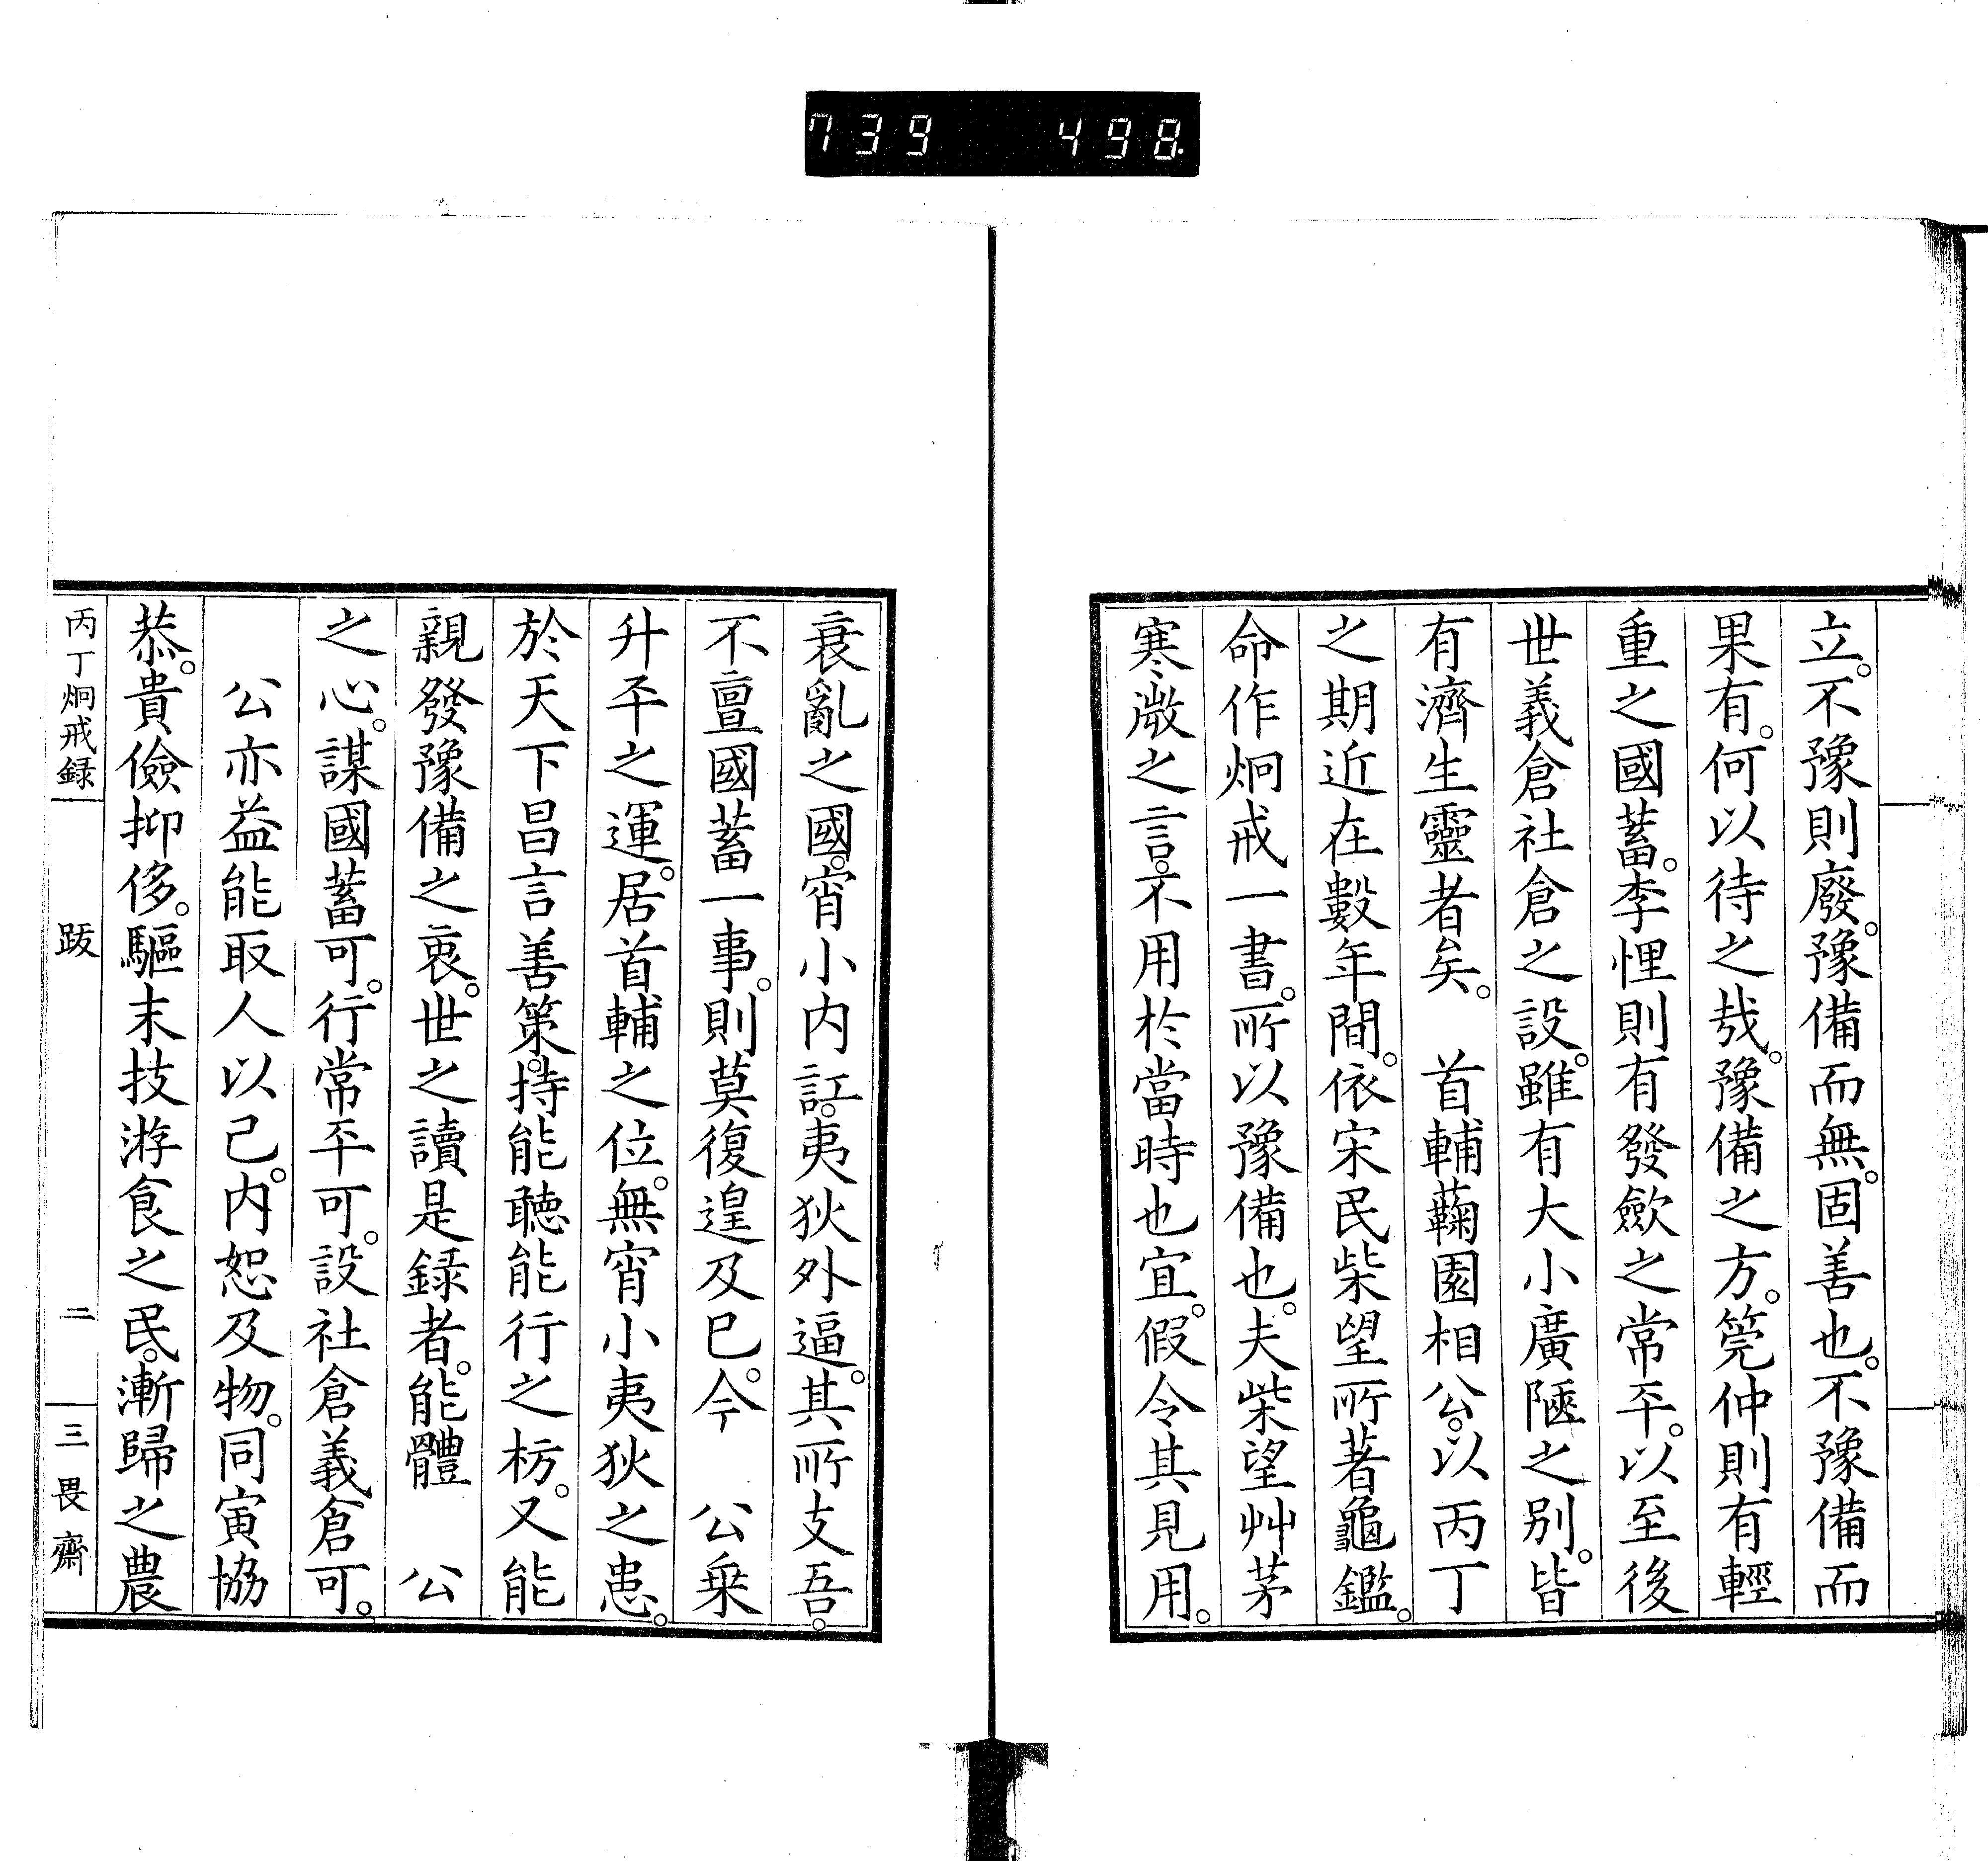 739 498.
立。不豫則廢。豫備而無。固善也。不豫備而
果有。何以待之哉。豫備之方。筦仲則有輕
重之國蓄。李悝則有發歛之常平。以至後
世義倉社倉之設。雖有大小廣陿之别。皆
有濟生靈者矣。　首輔蘜園相公。以丙丁
之期近在數年間。依宋民柴望所著龜鑑。
命作炯戒一書。所以豫備也。夫柴望艸茅
寒㵟之言。不用於當時也宜。假令其見用。
衰亂之國。宵小内訌。夷狄外逼。其所支吾。
不亶國蓄一事。則莫復遑及已。今　公乗
升平之運。居首輔之位。無宵小夷狄之患。
於天下昌言善策。持能聽能行之枋。又能
親發豫備之衷。世之讀是録者。能體　公
之心。謀國蓄可。行常平可。設社倉義倉可。
公亦益能取人以己。内恕及物。同寅協
恭。貴儉抑侈。驅末技游食之民。漸歸之農
丙丁炯戒録　跋　二　三畏齋